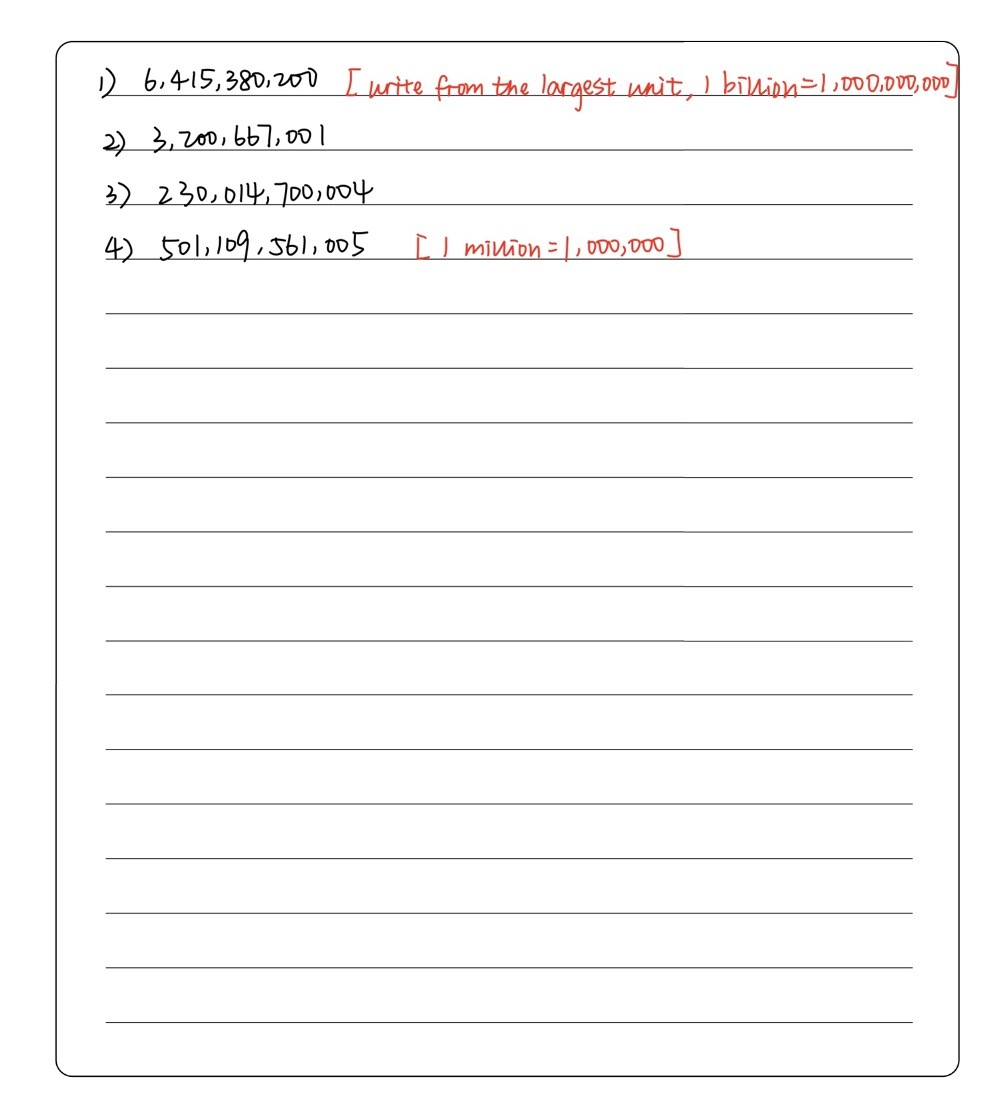 1) 6,415,380,200 [write from the largest unit, 1 billion=1,000,000,000]
2) 3,200,667,001
3) 230,014,700,004
4) 501,109,561,005 [1 million=1,000,000]